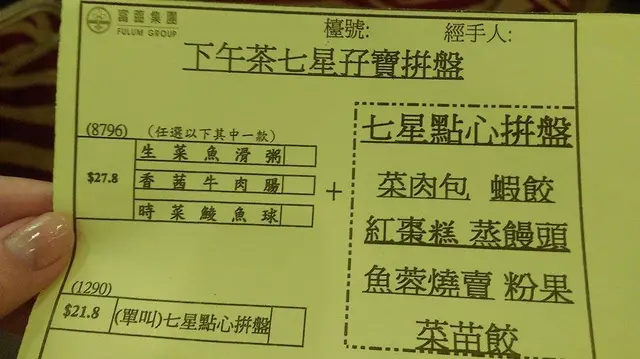 富臨集團
FULUM GROUP
檯號: 經手人:
下午茶七星孖寶拼盤
(8796) (任選以下其中一款)
$27.8
生菜魚滑粥
香茜牛肉腸
時菜鯪魚球
+
七星點心拼盤
菜肉包 蝦餃
紅棗糕 蒸饅頭
魚蓉燒賣 粉果
菜苗餃
(1290)
$21.8 (單叫)七星點心拼盤